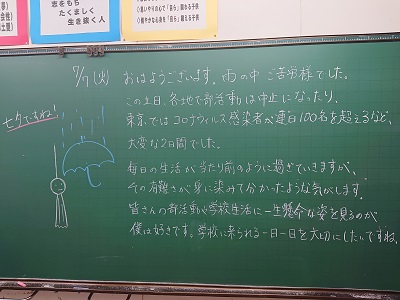 志をもち
たくましく
生き抜く人
7/7(火) おはようございます。雨の中ご苦労様でした。
この土日、各地で部活動は中止になったり、
東京ではコロナウィルス感染者が連日100名を超えるなど、
大変な2日間でした。
七夕ですね!
毎日の生活が当たり前のように過ぎていきますが、
その有難さが身に染みて分かったような気がします。
皆さんの部活動や学校生活に一生懸命な姿を見るのが
僕は好きです。学校に来られる一日一日を大切にしたいですね。